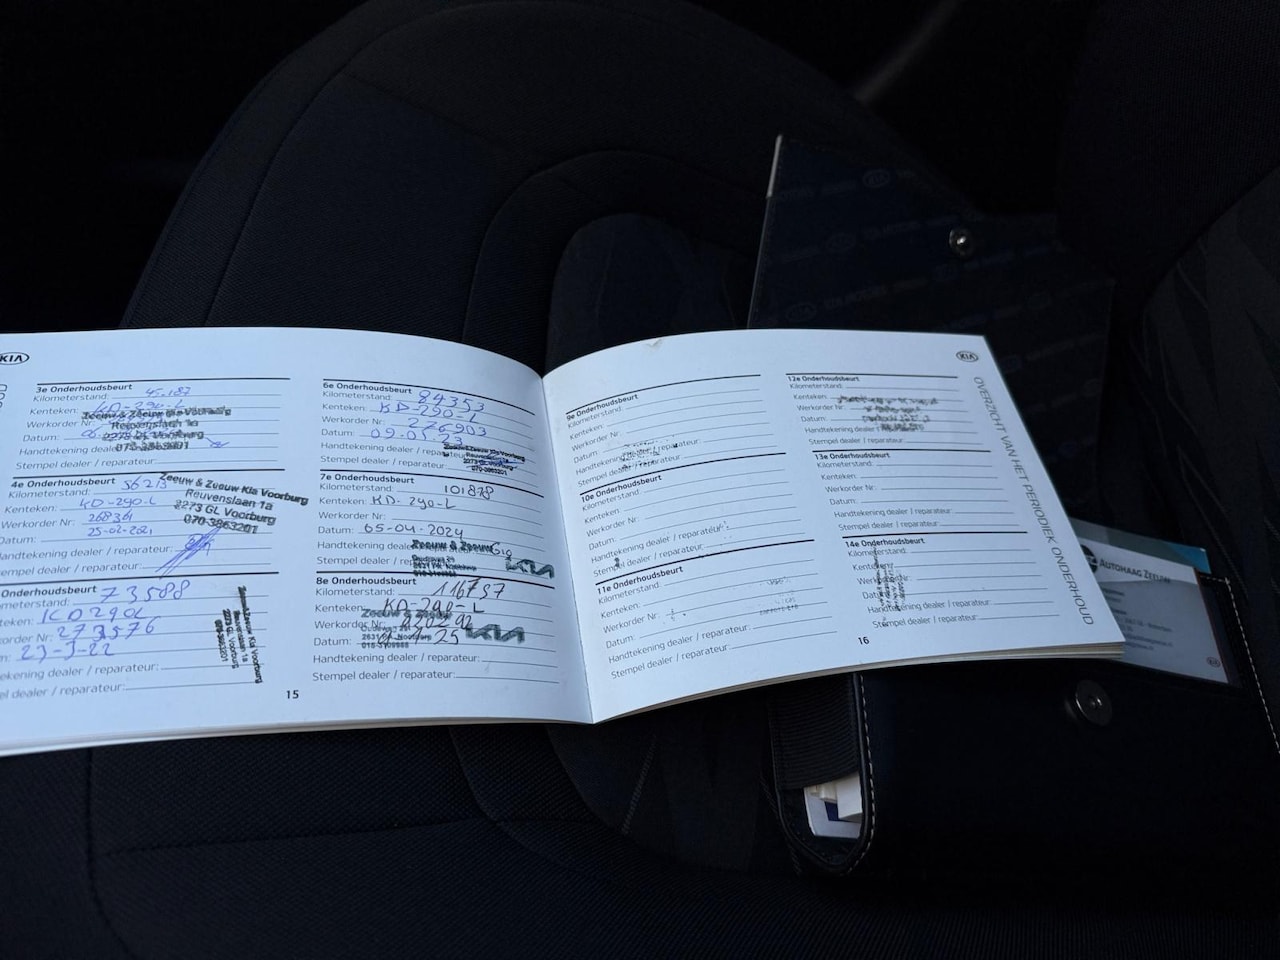 KIA
3e Onderhoudsbeurt
Kilometerstand: 45.187
Kenteken: KD-290-L
Werkorder Nr:
Datum:
Handtekening dealer
Stempel dealer / reparateur:
Zeeuw & Zeeuw Kia Voorburg
Reuvenslaan 1a
2273 GL Voorburg
070-3863201
4e Onderhoudsbeurt
Kilometerstand: 56213
Kenteken: KD-290-L
Werkorder Nr: 268361
Datum: 25-02-2021
Handtekening dealer / reparateur:
Stempel dealer / reparateur:
Zeeuw & Zeeuw Kia Voorburg
Reuvenslaan 1a
2273 GL Voorburg
070-3863201
Onderhoudsbeurt
meterstand: 73588
teken: KD290L
korder Nr: 273576
m: 23-3-22
tekening dealer / reparateur:
pel dealer / reparateur:
Zeeuw & Zeeuw Kia Voorburg
Reuvenslaan 1a
2273 GL Voorburg
070-3863201
15
6e Onderhoudsbeurt
Kilometerstand: 84353
Kenteken: KD-290-L
Werkorder Nr: 276903
Datum: 09-05-23
Handtekening dealer / reparateur:
Stempel dealer / reparateur:
Zeeuw & Zeeuw Kia Voorburg
Reuvenslaan 1a
2273 GL Voorburg
070-3863201
7e Onderhoudsbeurt
Kilometerstand: 101878
Kenteken: KD-290-L
Werkorder Nr:
Datum: 05-04-2024
Handtekening dealer
Stempel dealer / reparateur:
Zeeuw & Zeeuw
KIA
8e Onderhoudsbeurt
Kilometerstand: 116737
Kenteken: KD-290-L
Werkorder Nr:
Datum: 25
Handtekening dealer / reparateur:
Stempel dealer / reparateur:
Zeeuw & Zeeuw
KIA
9e Onderhoudsbeurt
Kilometerstand:
Kenteken:
Werkorder Nr:
Datum:
Handtekening dealer / reparateur:
Stempel dealer / reparateur:
10e Onderhoudsbeurt
Kilometerstand:
Kenteken:
Werkorder Nr:
Datum:
Handtekening dealer / reparateur:
Stempel dealer / reparateur:
11e Onderhoudsbeurt
Kilometerstand:
Kenteken:
Werkorder Nr:
Datum:
Handtekening dealer / reparateur:
Stempel dealer / reparateur:
KIA
12e Onderhoudsbeurt
Kilometerstand:
Kenteken:
Werkorder Nr:
Datum:
Handtekening dealer / reparateur:
Stempel dealer / reparateur:
13e Onderhoudsbeurt
Kilometerstand:
Kenteken:
Werkorder Nr:
Datum:
Handtekening dealer / reparateur:
Stempel dealer / reparateur:
14e Onderhoudsbeurt
Kilometerstand:
Kenteken:
Werkorder Nr:
Datum:
Handtekening dealer / reparateur:
Stempel dealer / reparateur:
16
OVERZICHT VAN HET PERIODIEK ONDERHOUD
KIA
AUTOHAAG ZEEUW